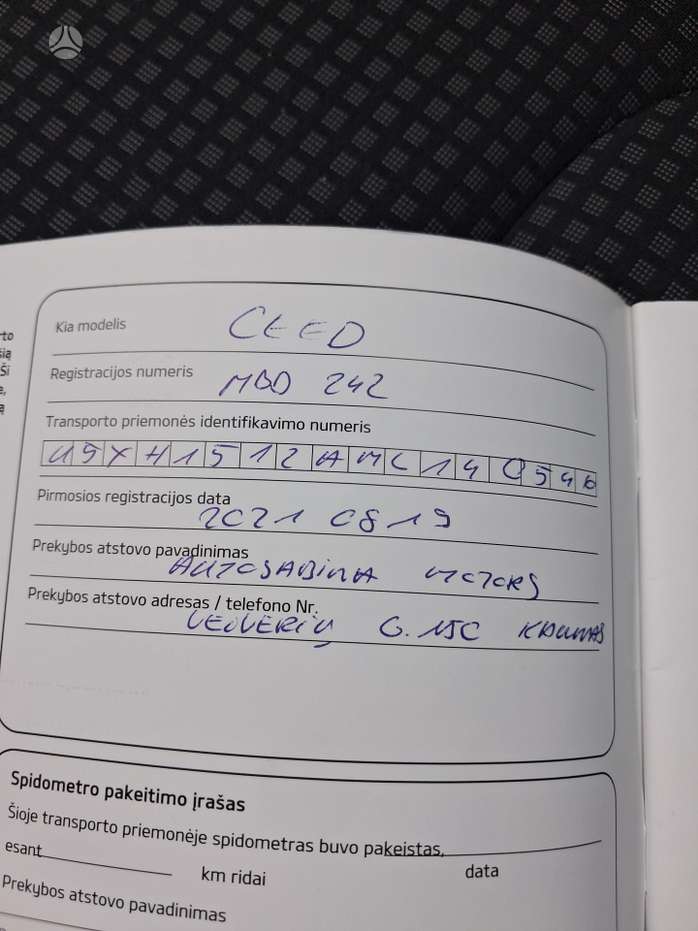 rto
sią
Ši
e,
ą
Kia modelis CEED
Registracijos numeris MBD 242
Transporto priemonės identifikavimo numeris
U5XH1512AML140546
Pirmosios registracijos data
2021 08 19
Prekybos atstovo pavadinimas
AUTOSABINA MOTORS
Prekybos atstovo adresas / telefono Nr.
VEIVERIŲ G. 150 KAUNAS
Spidometro pakeitimo įrašas
Šioje transporto priemonėje spidometras buvo pakeistas,
esant km ridai data
Prekybos atstovo pavadinimas